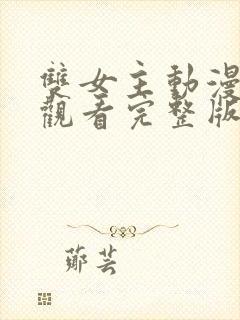 雙女主動漫
觀看完整版
鄭芸